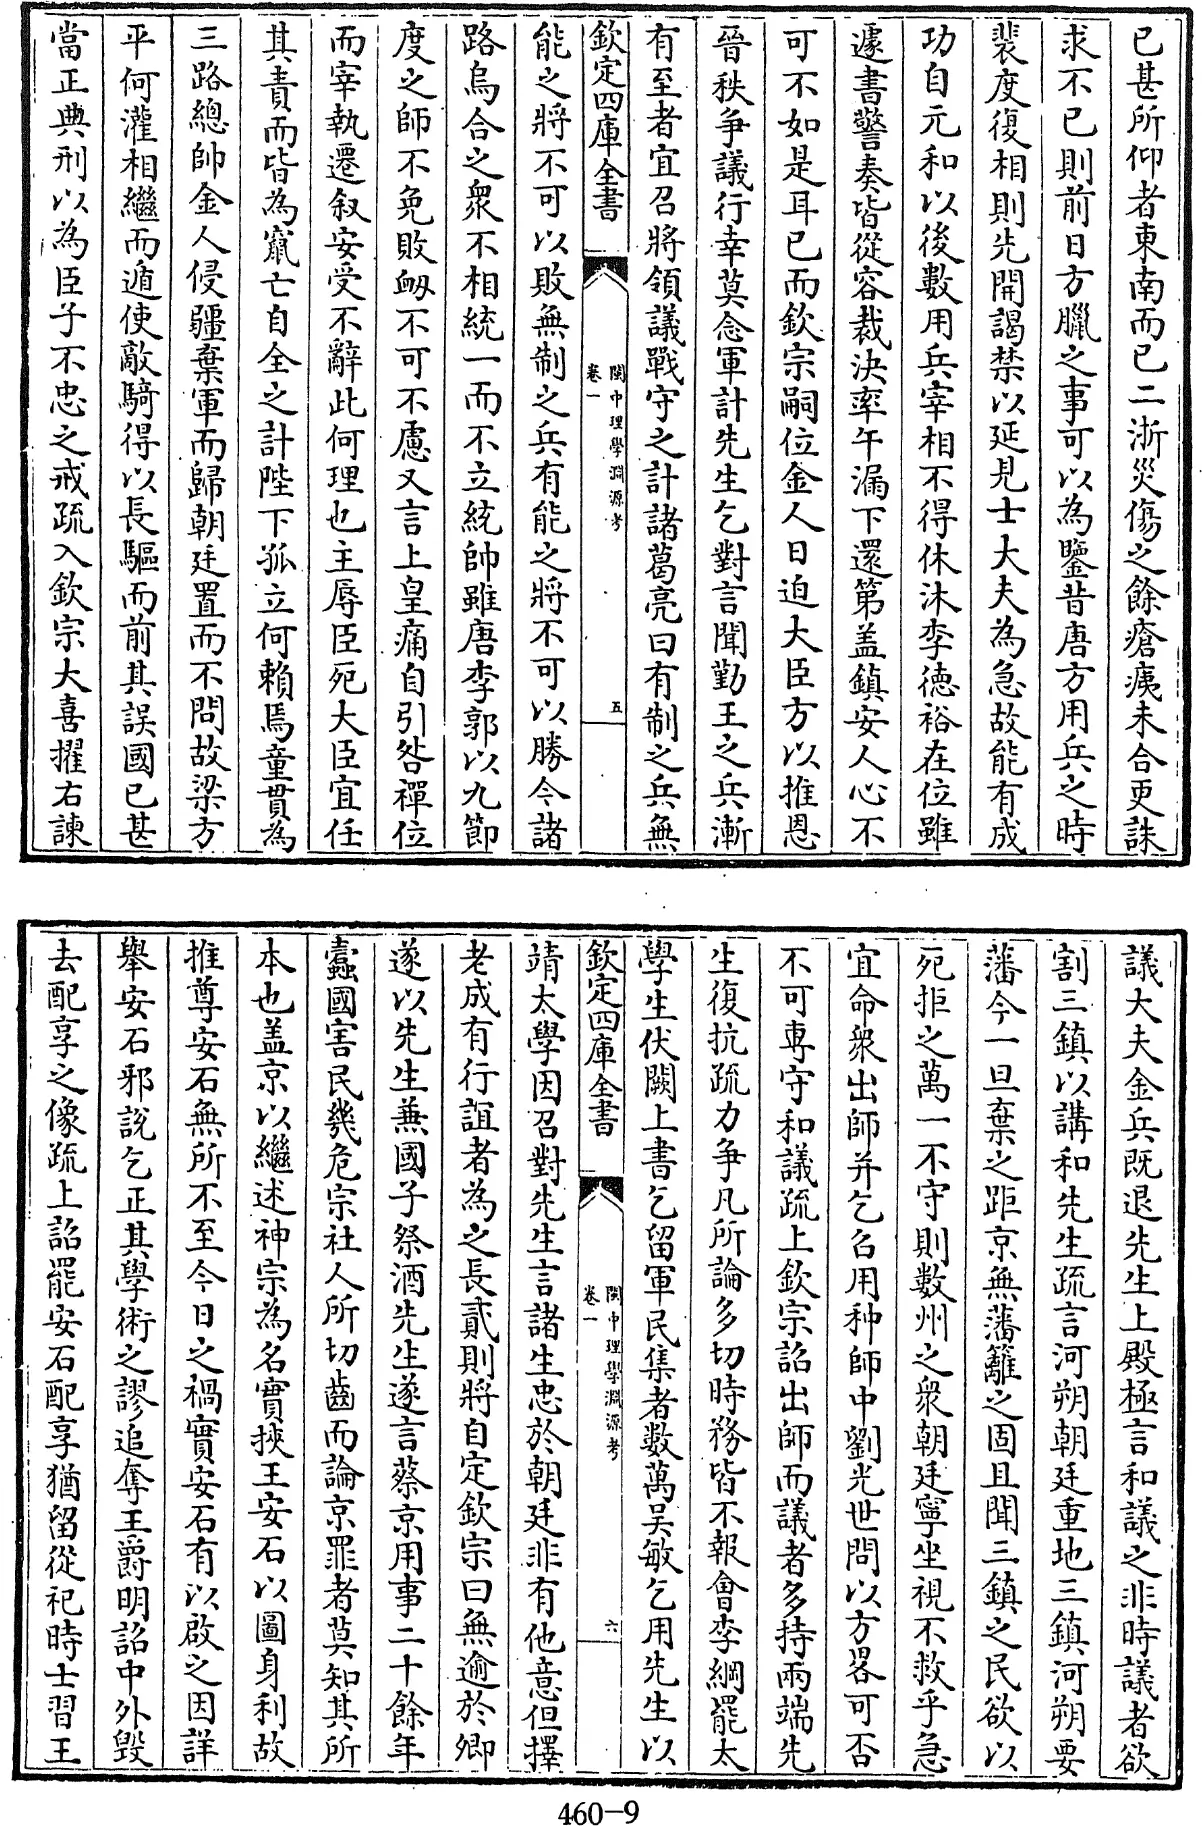 已甚所仰者東南而已二浙災傷之餘瘡痍未合更誅
求不已則前日方臘之事可以為鑒昔唐方用兵之時
裴度復相則先開謁禁以延見士大夫為急故能有成
功自元和以後數用兵宰相不得休沐李德裕在位雖
遽書警奏皆從容裁決率午漏下還第盖鎮安人心不
可不如是耳已而欽宗嗣位金人日迫大臣方以推恩
晉秩争議行幸莫念軍計先生乞對言聞勤王之兵漸
有至者宜召將領議戰守之計諸葛亮曰有制之兵無
欽定四庫全書
閩中理學淵源考
卷一
五
能之將不可以敗無制之兵有能之將不可以勝今諸
路烏合之衆不相統一而不立統帥雖唐李郭以九節
度之師不免敗衂不可不慮又言上皇痛自引咎禪位
而宰執遷叙安受不辭此何理也主辱臣死大臣宜任
其責而皆為竄亡自全之計陛下孤立何賴焉童貫為
三路總帥金人侵疆棄軍而歸朝廷置而不問故梁方
平何灌相繼而遁使敵騎得以長驅而前其誤國已甚
當正典刑以為臣子不忠之戒疏入欽宗大喜擢右諫
議大夫金兵既退先生上殿極言和議之非時議者欲
割三鎮以講和先生疏言河朔朝廷重地三鎮河朔要
藩今一旦棄之距京無藩籬之固且聞三鎮之民欲以
死拒之萬一不守則數州之衆朝廷寧坐視不救乎急
宜命衆出師并乞召用种師中劉光世問以方畧可否
不可専守和議疏上欽宗詔出師而議者多持兩端先
生復抗疏力争凡所論多切時務皆不報會李綱罷太
學生伏闕上書乞留軍民集者數萬吴敏乞用先生以
欽定四庫全書
閩中理學淵源考
卷一
六
靖太學因召對先生言諸生忠於朝廷非有他意但擇
老成有行誼者為之長貳則將自定欽宗曰無逾於卿
遂以先生兼國子祭酒先生遂言蔡京用事二十餘年
蠧國害民幾危宗社人所切齒而論京罪者莫知其所
本也盖京以繼述神宗為名實挾王安石以圖身利故
推尊安石無所不至今日之禍實安石有以啟之因詳
舉安石邪說乞正其學術之謬追奪王爵明詔中外毁
去配享之像疏上詔罷安石配享猶留從祀時士習王
460-9